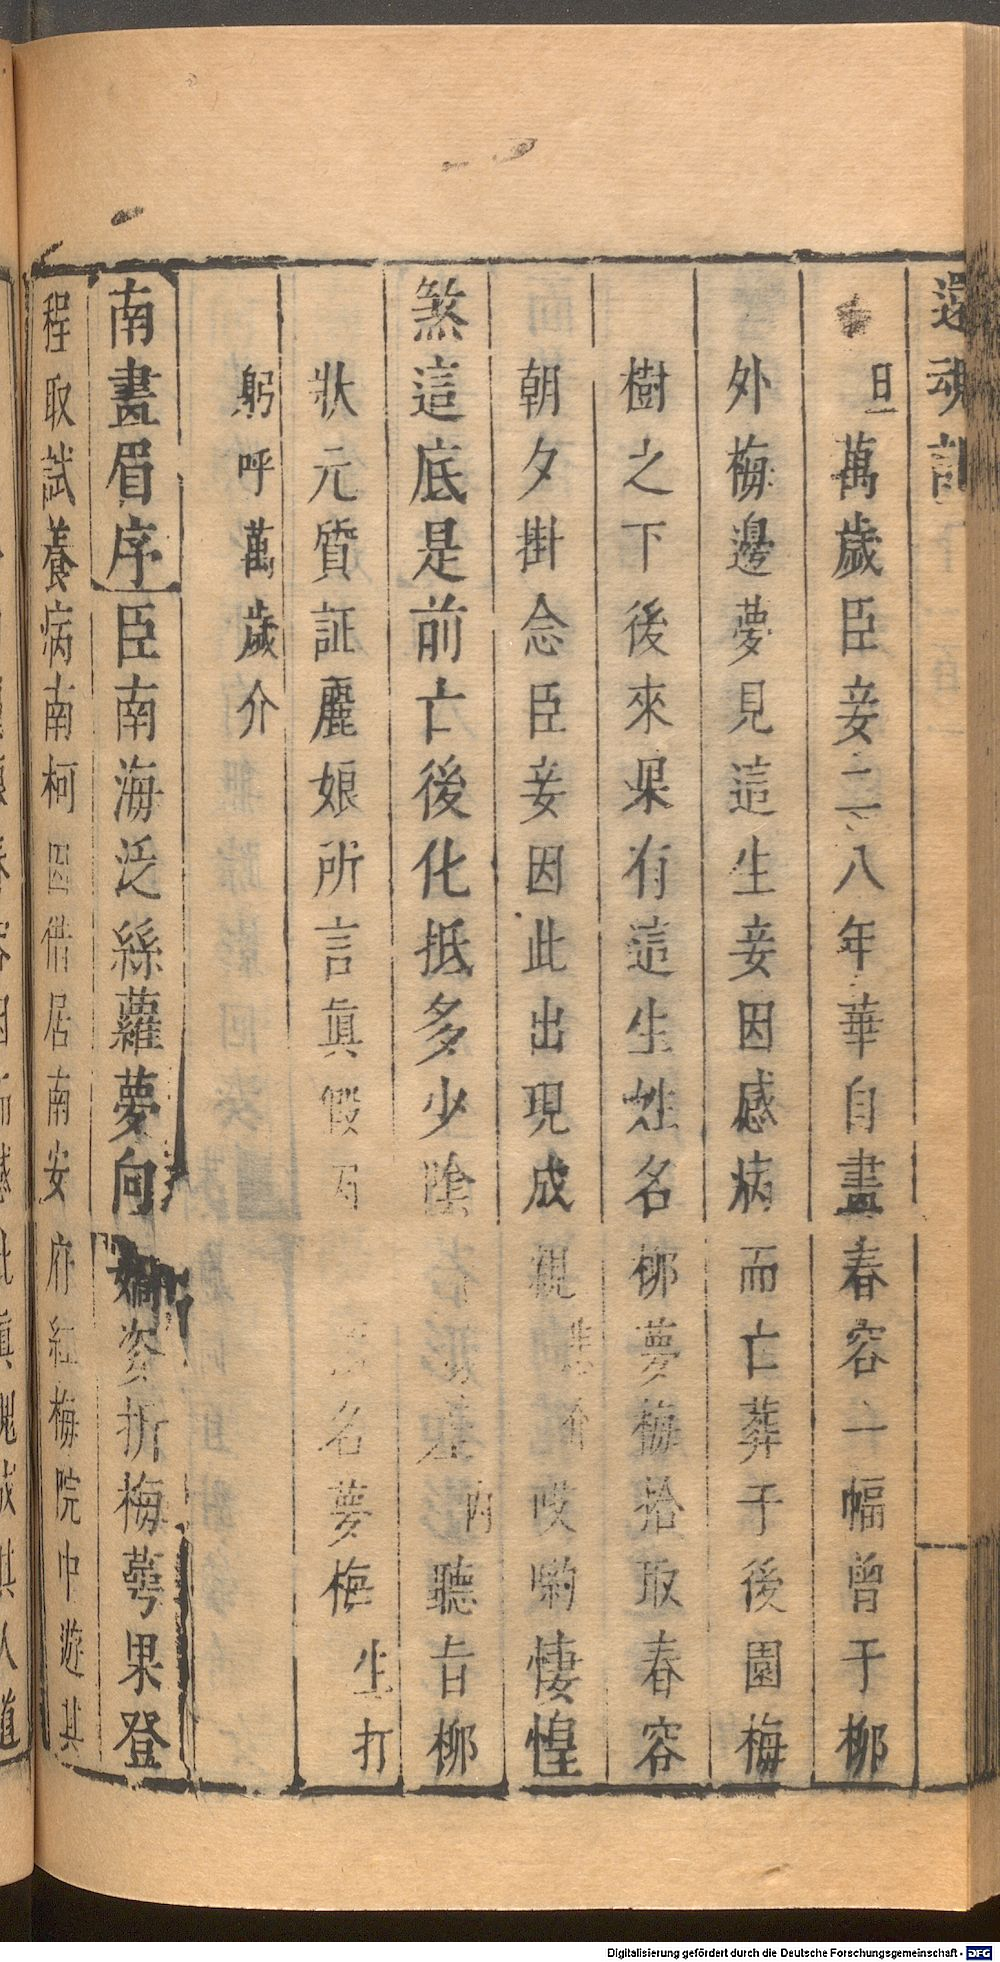 還魂記
旦萬歲臣妾二八年華自畫春容一幅曾于柳
外梅邊夢見這生妾因感病而亡葬于後園梅
樹之下後來果有這生姓名柳夢梅拾取春容
朝夕掛念臣妾因此出現成親悲介哎喲悽惶
煞這底是前亡後化抵多少陰內聽旨柳
狀元質証麗娘所言真假名夢梅生打
躬呼萬歲介
南畫眉序臣南海泛絲蘿夢向嬌姿折梅萼果登
程取試養病南柯因借居南安府紅梅院中遊其
Digitalisierung gefördert durch die Deutsche Forschungsgemeinschaft - DFG